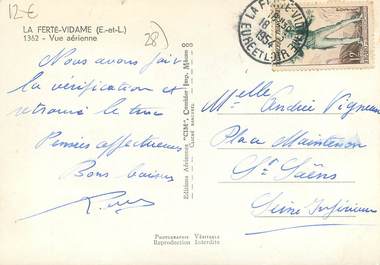 12€
LA FERTÉ-VIDAME (E.-et-L.)
1362 - Vue aérienne
28)
Nous avons fait
la vérification et
retrouvé le truc
Pensées affectueuses
Bons baisers
Editions Aériennes "CIM", Combier Imp. Mâcon
LA FERTÉ-VIDAME
18
1954
EURE ET LOIR
12
Melle Andrée Vigneau
Place Maintenon
St Saëns
Seine Inférieure
PHOTOGRAPHIE VÉRITABLE
Reproduction Interdite